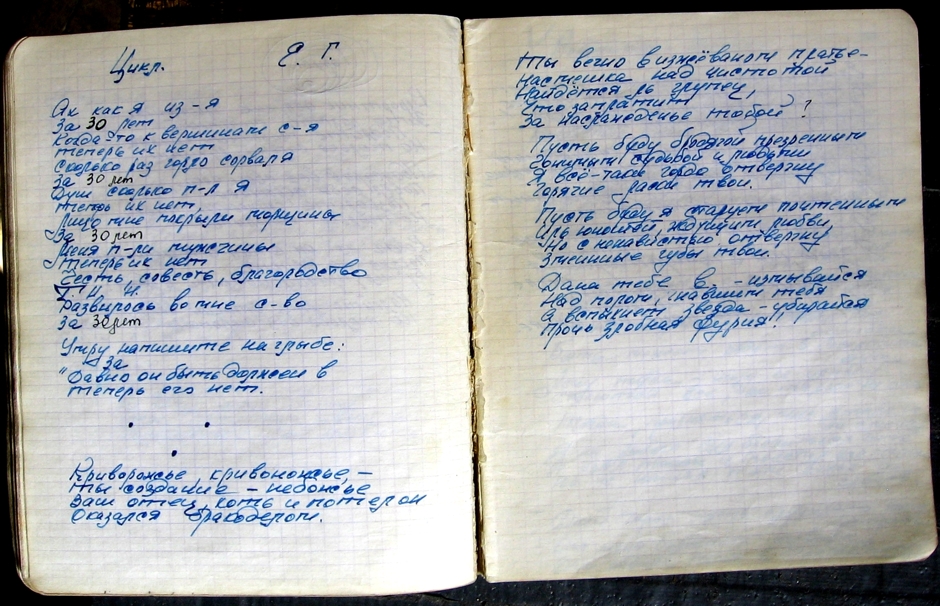 Цикл. Е. Г.
Ах как я из-я
За 30 лет
Когда-то к вершинам с-я
теперь их нет
Сколько раз горло сорвала
За 30 лет
Душ сколько п-л я
теперь их нет,
Лицо мне покрыли морщины
За 30 лет
Меня л-ли мужчины
теперь их нет
Честь, совесть, благородство
Т. И. Н.
Развилось во мне с-во
За 30 лет
Умру напишите на гробе:
За
"Давно он быть должен в
теперь его нет.
Криворожье, кривоножье, –
ты создание – небожье
Ваш отец, хоть и помер он
Оказался бракоделом.
Ты вечно в изжёванном платье –
насмешка над чистотой
Найдётся ль глупец,
что заплатит
За наслажденье тобой?
Пусть буду бродягой презренным
Гонимым судьбой и людьми
Я всё-таки гордо отвергну
Горячие – ласки твои.
Пусть буду я старцем почтенным
Иль юношей, ждущим любви
Но с ненавистью отвергну
Змеиные губы твои.
Дана тебе в – измывайся
Над полом, снабжавшим тебя
А вспыхнет звезда – убирайся
Прочь злобная фурия!